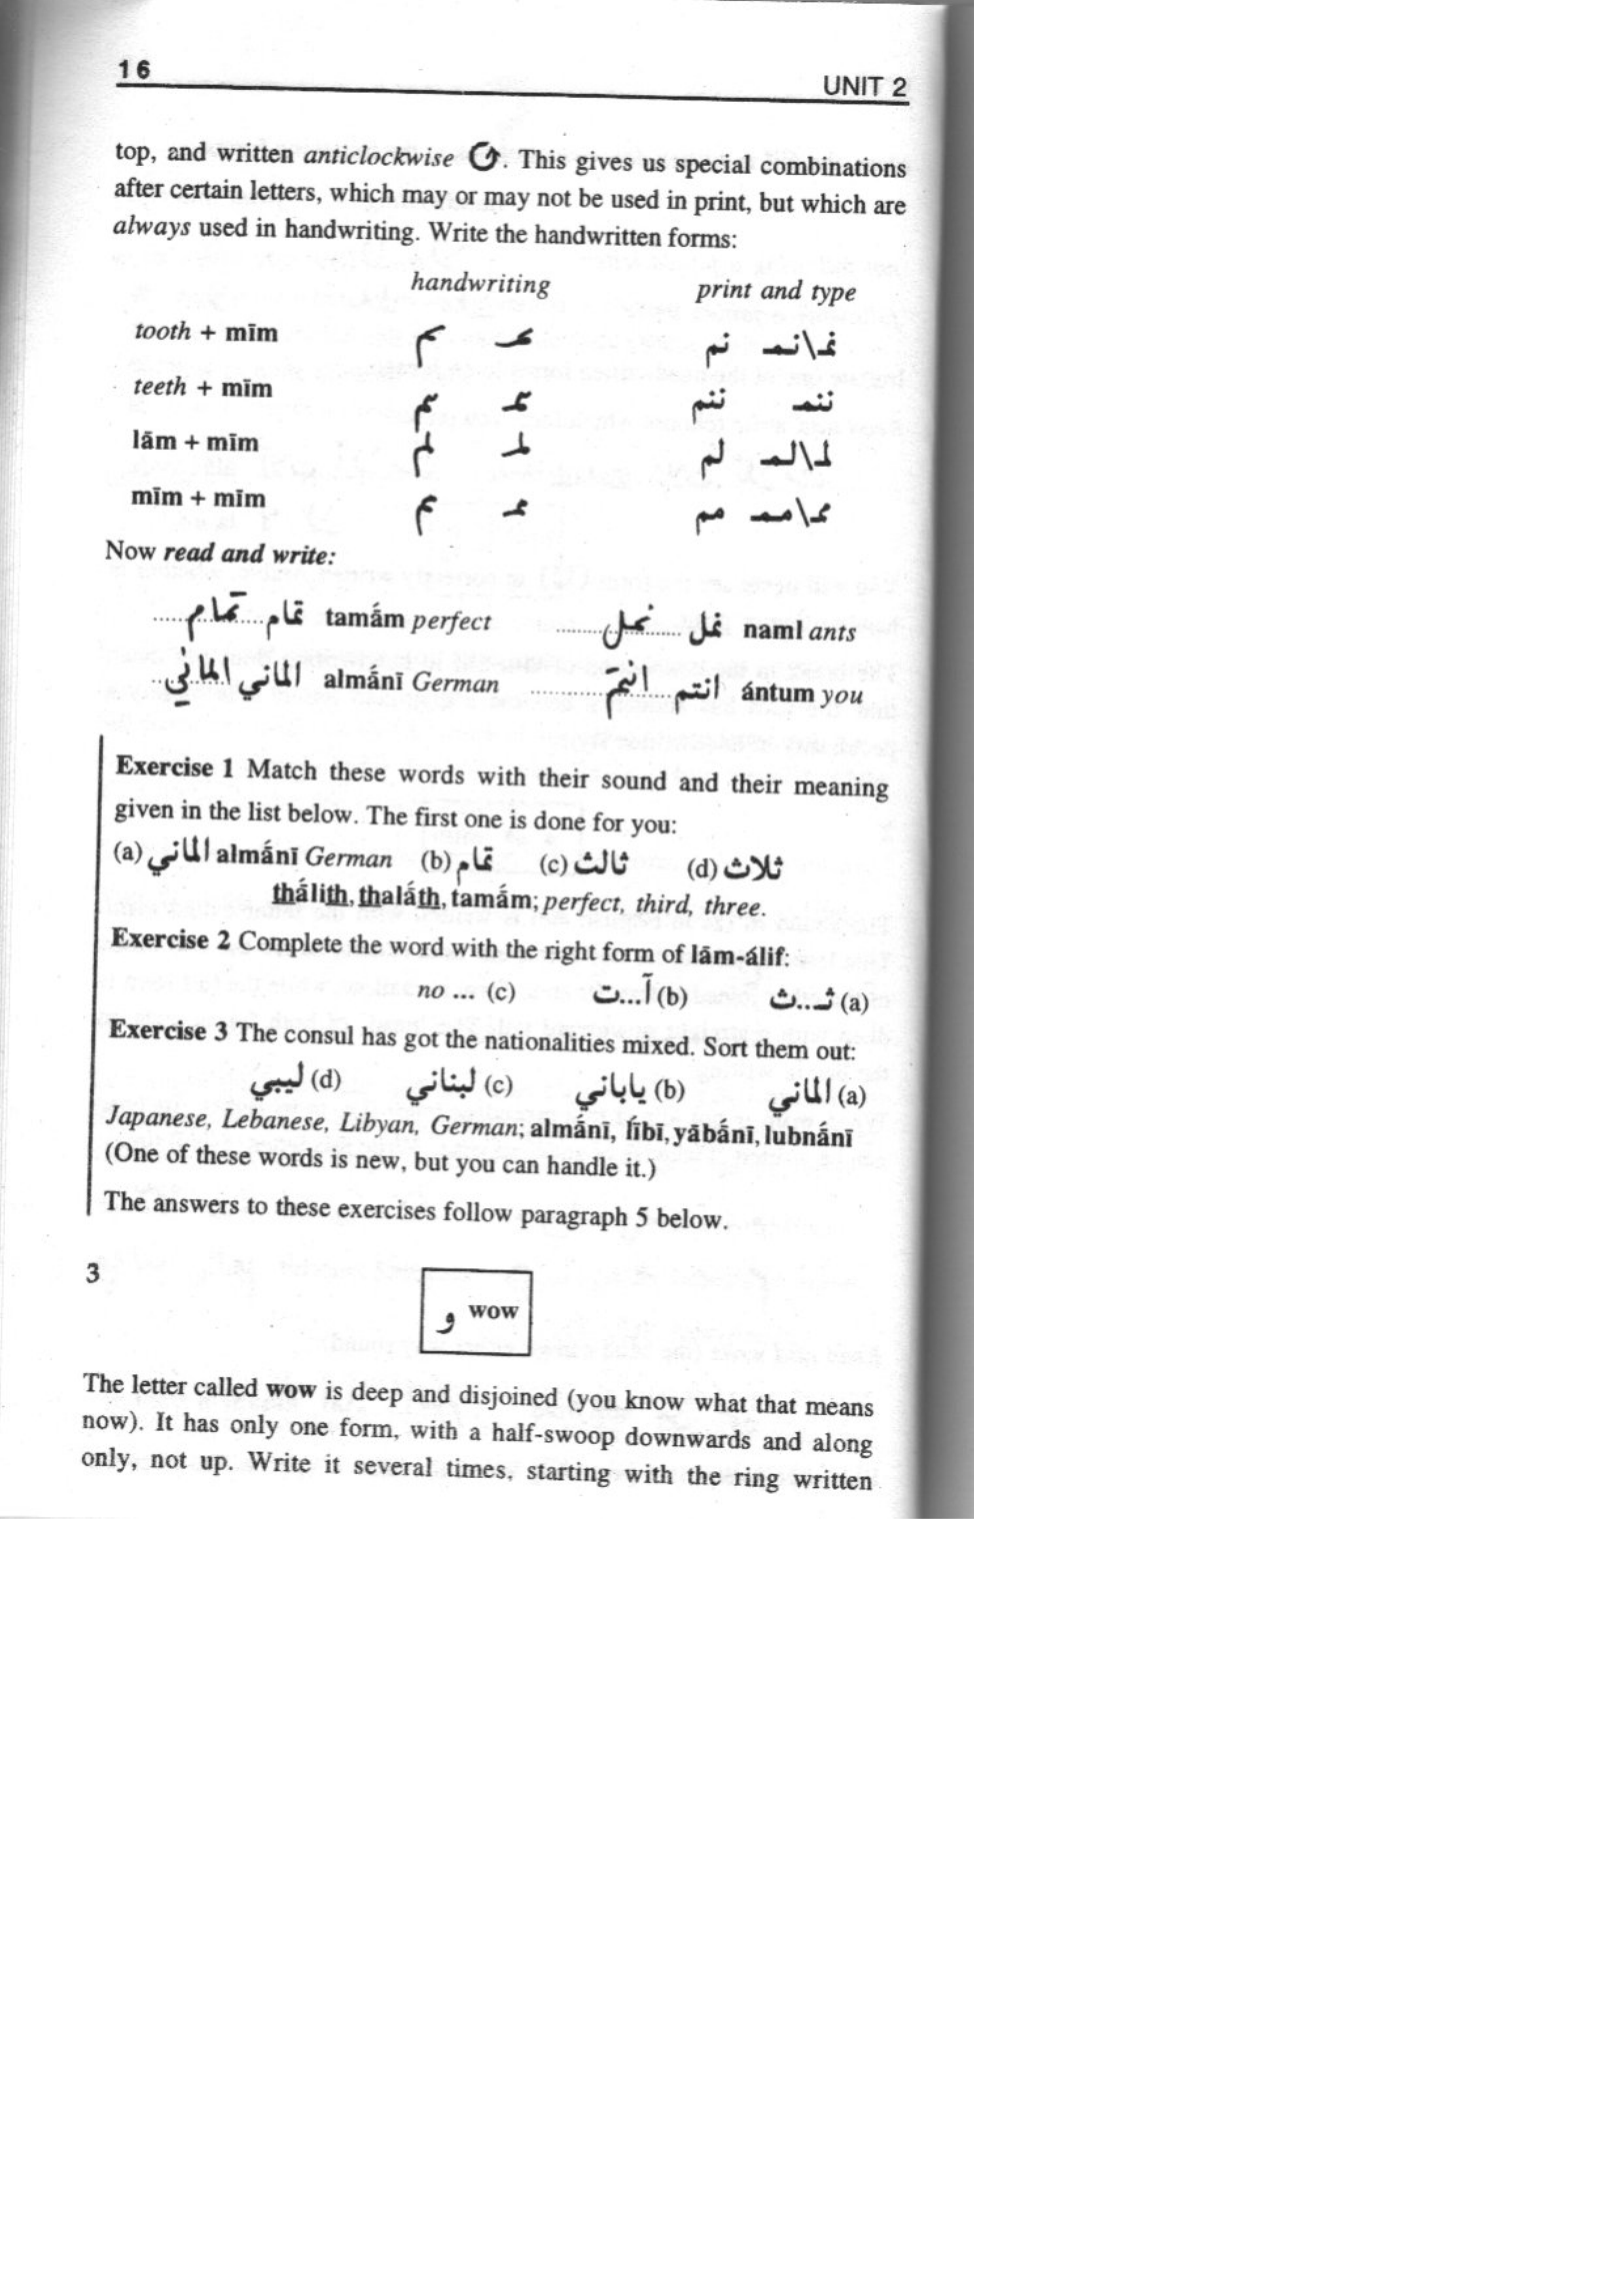 16
UNIT 2
top, and written anticlockwise . This gives us special combinations
after certain letters, which may or may not be used in print, but which are
always used in handwriting. Write the handwritten forms:
handwriting print and type
tooth + mīm نم نمـ\نمـ
teeth + mīm ننم ننمـ
lām + mīm لم لمـ\لمـ
mīm + mīm مم ممـ\ممـ
Now read and write:
تمام ........ تمام tamā́m perfect نمل ........ نمل naml ants
الماني ........ الماني almā́nī German انتم ........ انتم ántum you
Exercise 1 Match these words with their sound and their meaning
given in the list below. The first one is done for you:
(a) الماني almā́nī German (b) تمام (c) ثالث (d) ثلاث
thā́lith, thalā́th, tamā́m; perfect, third, three.
Exercise 2 Complete the word with the right form of lām-álif:
(a) ثـ...ث (b) آ...ت (c) ... no
Exercise 3 The consul has got the nationalities mixed. Sort them out:
(a) الماني (b) ياباني (c) لبناني (d) ليبي
Japanese, Lebanese, Libyan, German; almā́nī, lī́bī, yābā́nī, lubnā́nī
(One of these words is new, but you can handle it.)
The answers to these exercises follow paragraph 5 below.
3
و wow
The letter called wow is deep and disjoined (you know what that means
now). It has only one form, with a half-swoop downwards and along
only, not up. Write it several times, starting with the ring written